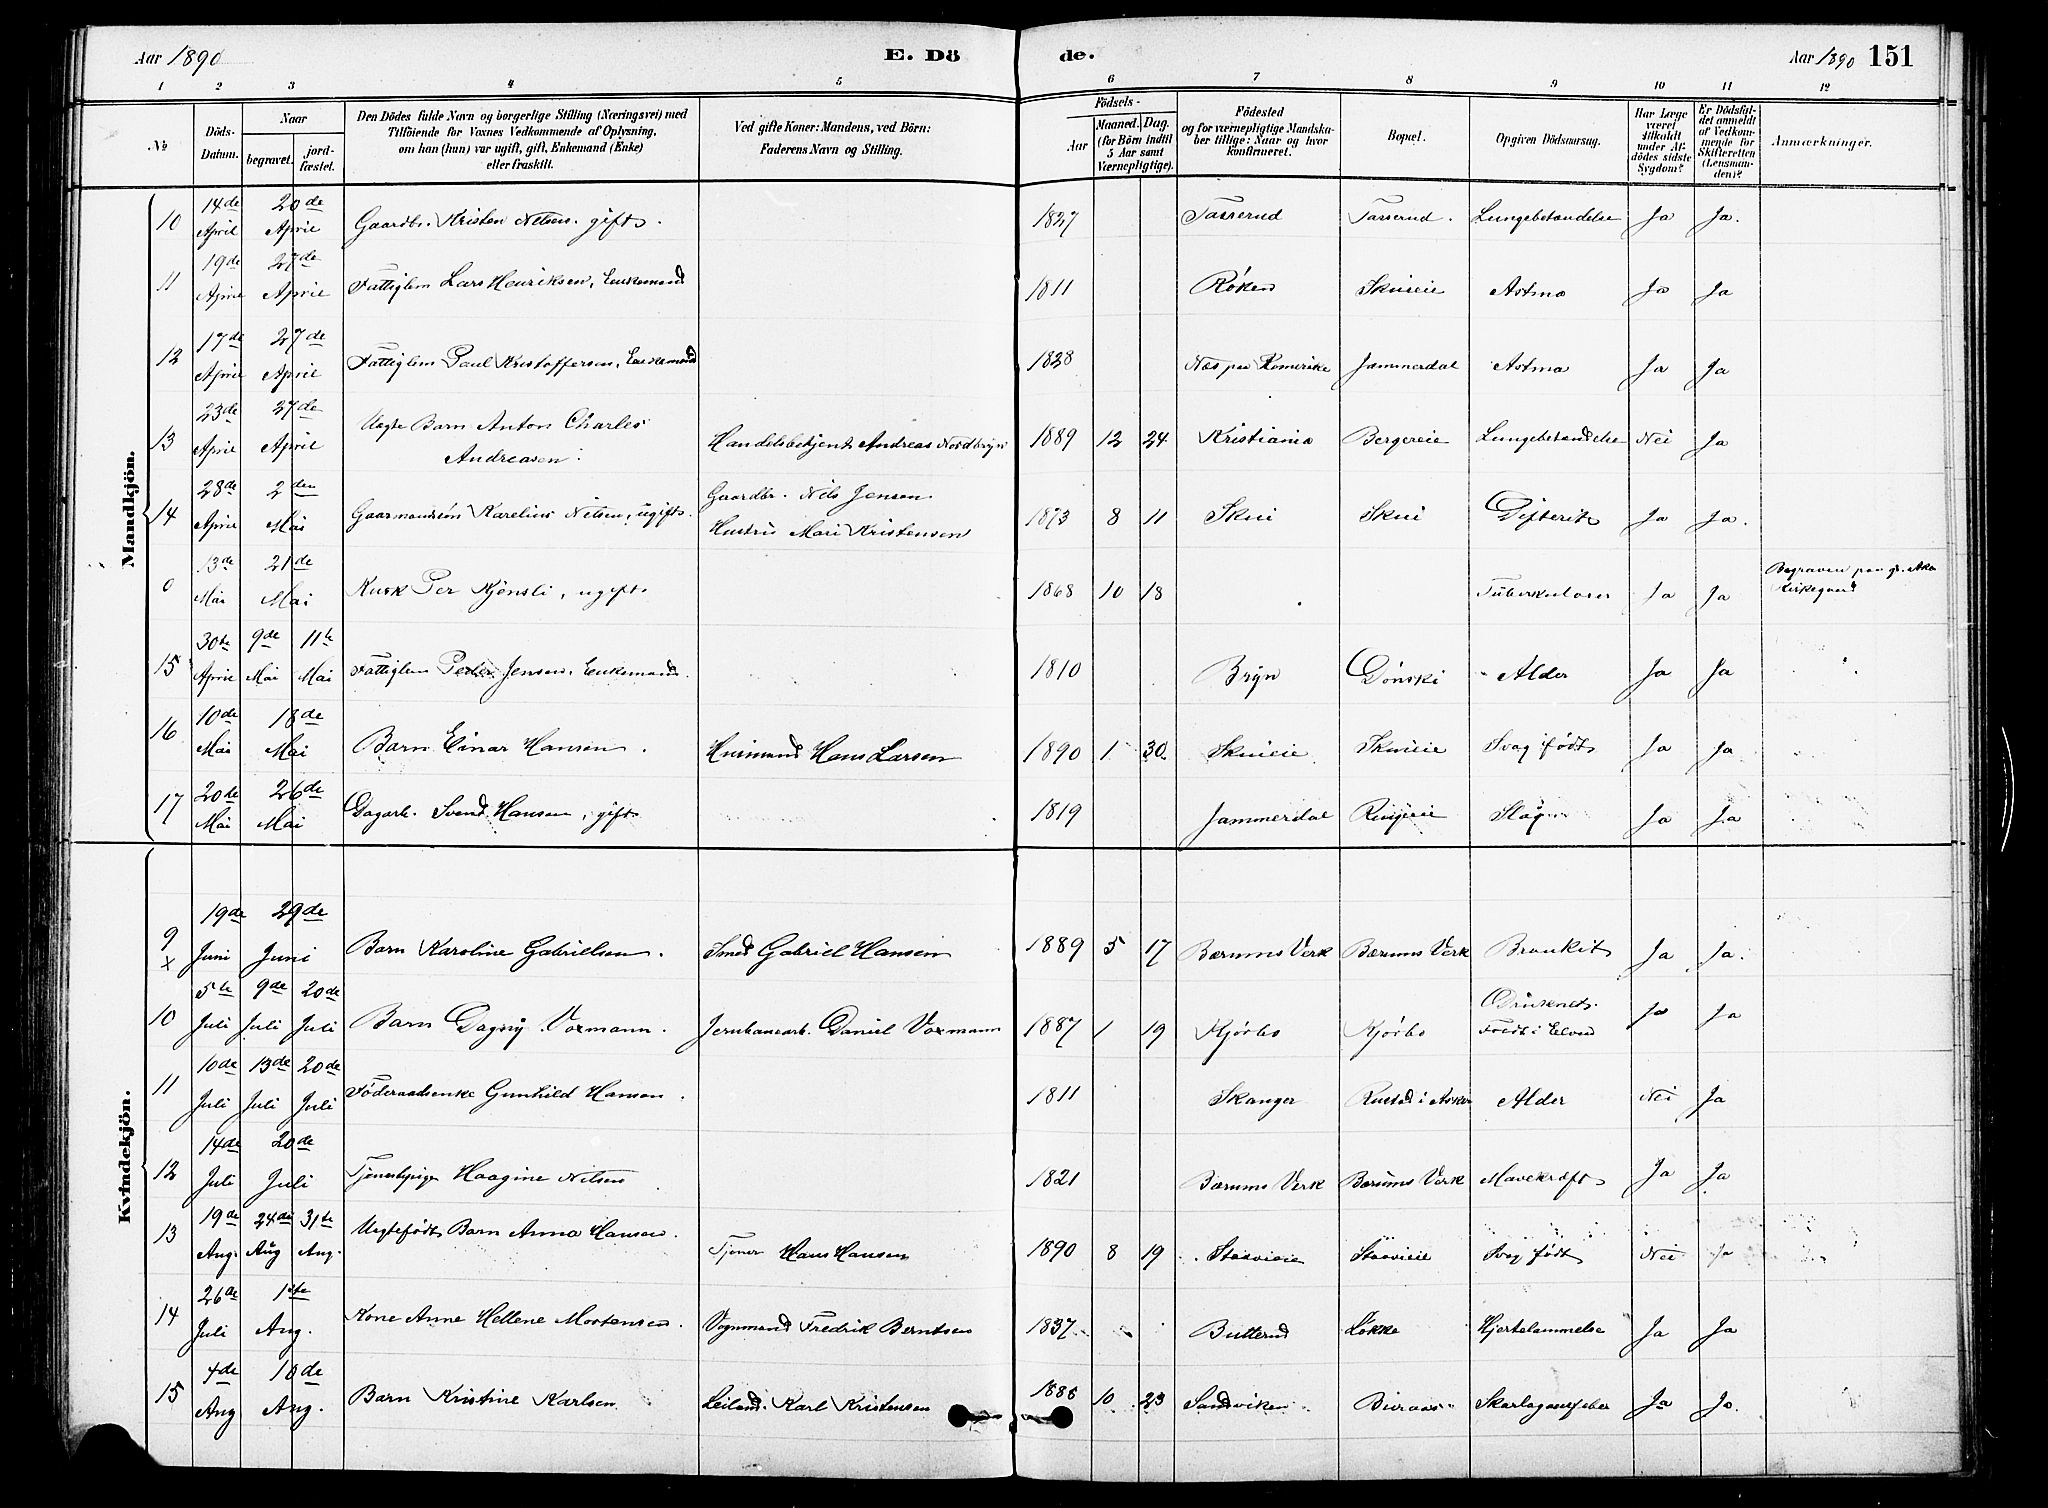 Aar 1890 E. Dö de. Aar 1890 151
1 2 3 4 5 6 7 8 9 10 11 12
No
Döds-Datum.
Naar
begravet.
jordfæstet.
Den Dödes fulde Navn og borgerlige Stilling (Næringsvei) med
Tilföiende for Voxnes Vedkommende af Oplysning,
om han (hun) var ugift, gift, Enkemand (Enke)
eller fraskilt.
Ved gifte Koner: Mandens, ved Börn:
Faderens Navn og Stilling.
Födsels-
Aar
Maaned. Dag.
(for Börn indtil
5 Aar samt
Værnepligtige).
Födested
og for værnepligtige Mandskaber tillige: Naar og hvor
konfirmeret.
Bopæl.
Opgiven Dödsaarsag.
Har Læge været tilkaldt under Afdödes sidste Sygdom?
Er Dödsfaldet anmeldt af Vedkommende for Skifteretten (Lensmanden)?
Anmærkninger.
Mandkjön.
10 14de April 20de April Gaardbr. Kristen Nilsen. gift. 1827 Tasserud Tasserud. Lungebetændelse Ja Ja.
11 19de April 27de April Fattiglem Lars Henriksen, Enkemand 1811 Røken Skuieie Astma Ja Ja
12 17de April 27de April Fattiglem Paul Kristoffersen, Enkemand 1828 Næs paa Romerike Jammerdal Astma Ja Ja
13 23de April 27de April Uægte Barn Anton Charles Andreasen. Handelsbetjent Andreas Nordbryn 1889 12 24 Kristiania Bergereie Lungebetændelse Nei Ja
14 28de April 2den Mai Gaarmandssøn Karelius Nilsen, ugift. Gaardbr. Nils Jensen Hustru Mari Kristensen 1873 8 11 Skui Skui Difterit Ja Ja.
0 13de Mai 21de Mai Kusk Per Kjønsli, ugift. 1868 10 18 Tuberkuloser Ja Ja Begraven paa gr. Aker Kirkegaard
15 30te April 9de Mai 11te Mai Fattiglem Peder Jensen, Enkemand. 1810 Bryn Dønski Alder Ja Ja
16 10de Mai 18de Mai Barn Einar Hansen. Husmand Hans Larsen 1890 1 30 Skuieie Skuieie Svag født Ja Ja
17 20de Mai 26de Mai Dagarb. Svend Hansen, gift 1819 Jammerdal Ringieie Slag Ja Ja
Kvindekjön.
9 x 19de Juni 29de Juni Barn Karoline Gabrielsen. Smed Gabriel Hansen 1889 5 17 Bærums Verk Bærums Verk Bronkit Ja Ja.
10 5te Juli 9de Juli 20de Juli Barn Dagny Voxmann. Jernbanearb. Daniel Voxmann 1887 1 19 Kjørbo Kjørbo Druknet. Faldt i Elven Ja Ja
11 10de Juli 13de Juli 20de Juli Föderaadsenke Gunhild Hansen. 1811 Skanger Rustad i Asker Alder Nei Ja
12 14de Juli 20de Juli Tjenestepige Haagine Nilsen 1821 Bærums Verk Bærums Verk Mavekræft Ja Ja
13 19de Aug. 24de Aug 31te Aug. Uægtefødt Barn Anna Hansen. Tjener Hans Hansen 1890 8 19 Stavieie Stavieie Svag født Nei Ja
14 26de Juli 1ste Aug. Kone Anne Hellene Mortensen. Vognmand Fredrik Berntsen 1837 Butterud Løkke Hjertelammelse Ja Ja
15 4de Aug 10de Aug. Barn Kristine Karlsen. Leiland. Karl Kristensen 1888 10 23 Sandviken Bieraas Skarlagensfeber Ja Ja.